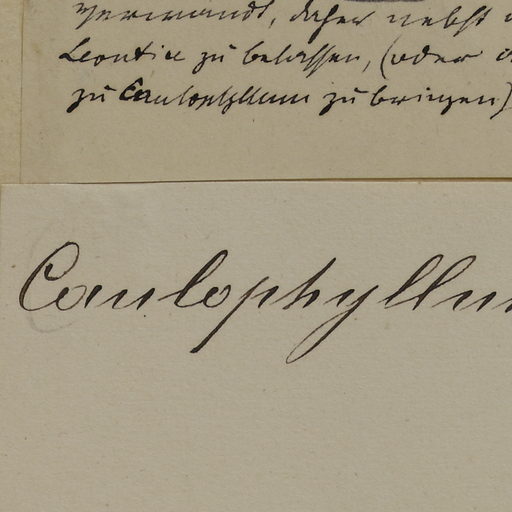 verwandt, daher nebst
Leontice zu belassen, (oder
zu Caulophyllum zu bringen)
Caulophyllum